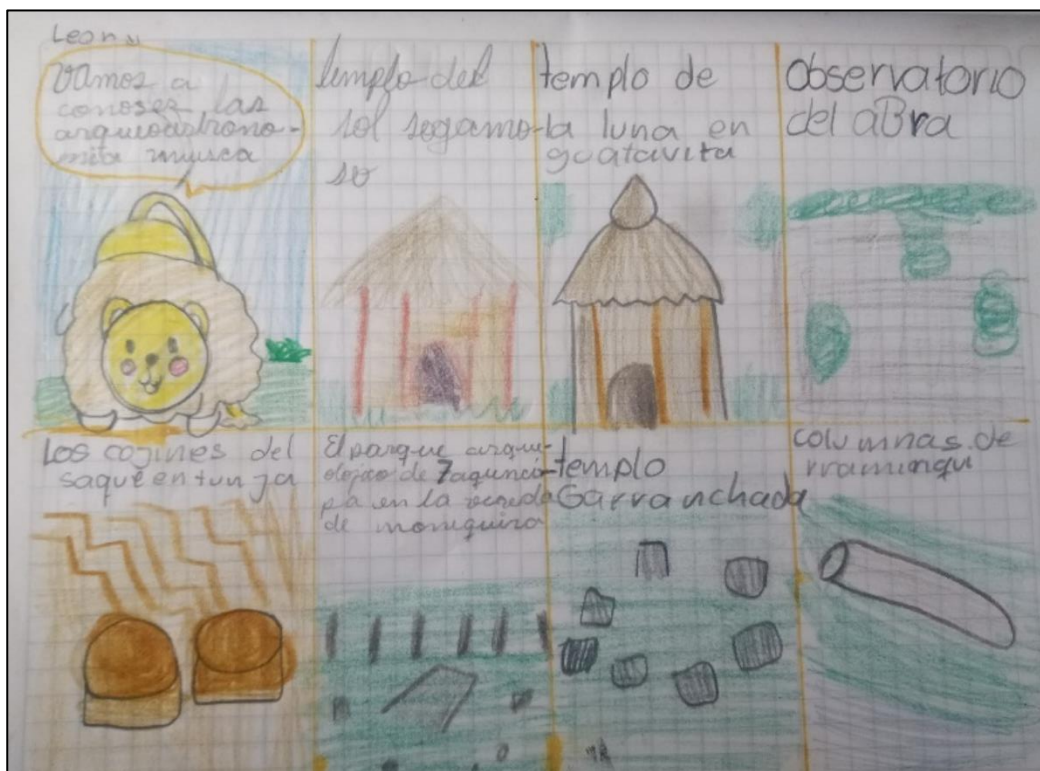 Leon
Vamos a
conoser las
arqueoastrono-
mia muisca
templo del
sol sogamo-
so
templo de
la luna en
guatavita
observatorio
del aBra
Los cojines del
saque en tunja
El parque arque-
olojico de Zaquenci-
pa en la vereda
de moniquira
templo
Garranchada
columnas de
rramiriqui